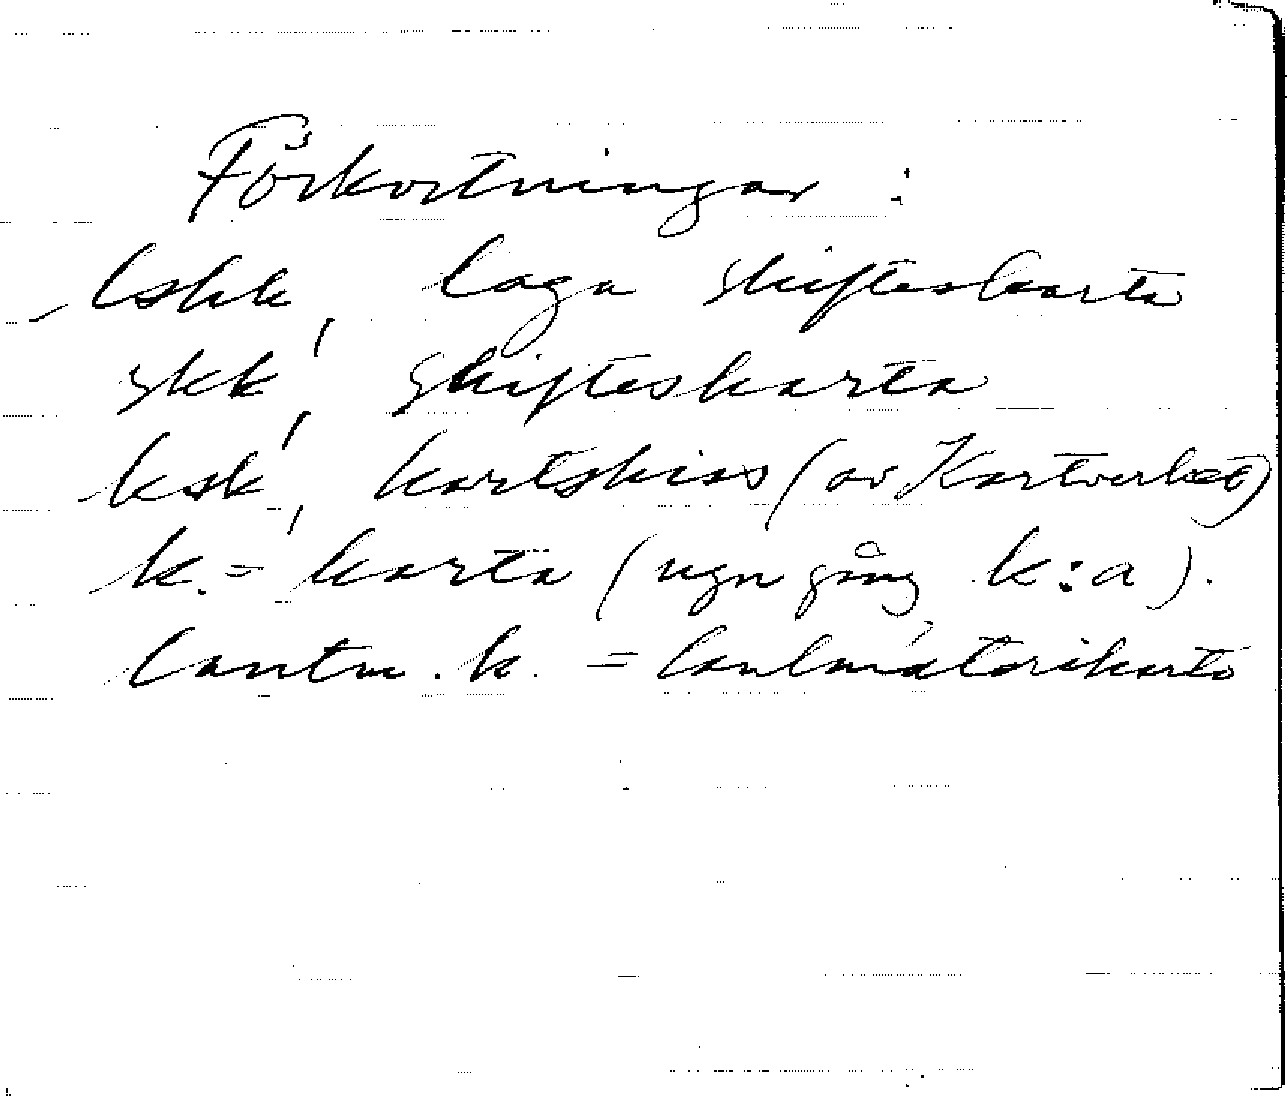 Förkortningar :
lskk, laga skifteskarta
skk, skifteskarta
ksk, kartskiss (av Kartverket)
k. = karta (ngn gång k:a).
lantm. k. = lantmäterikarta